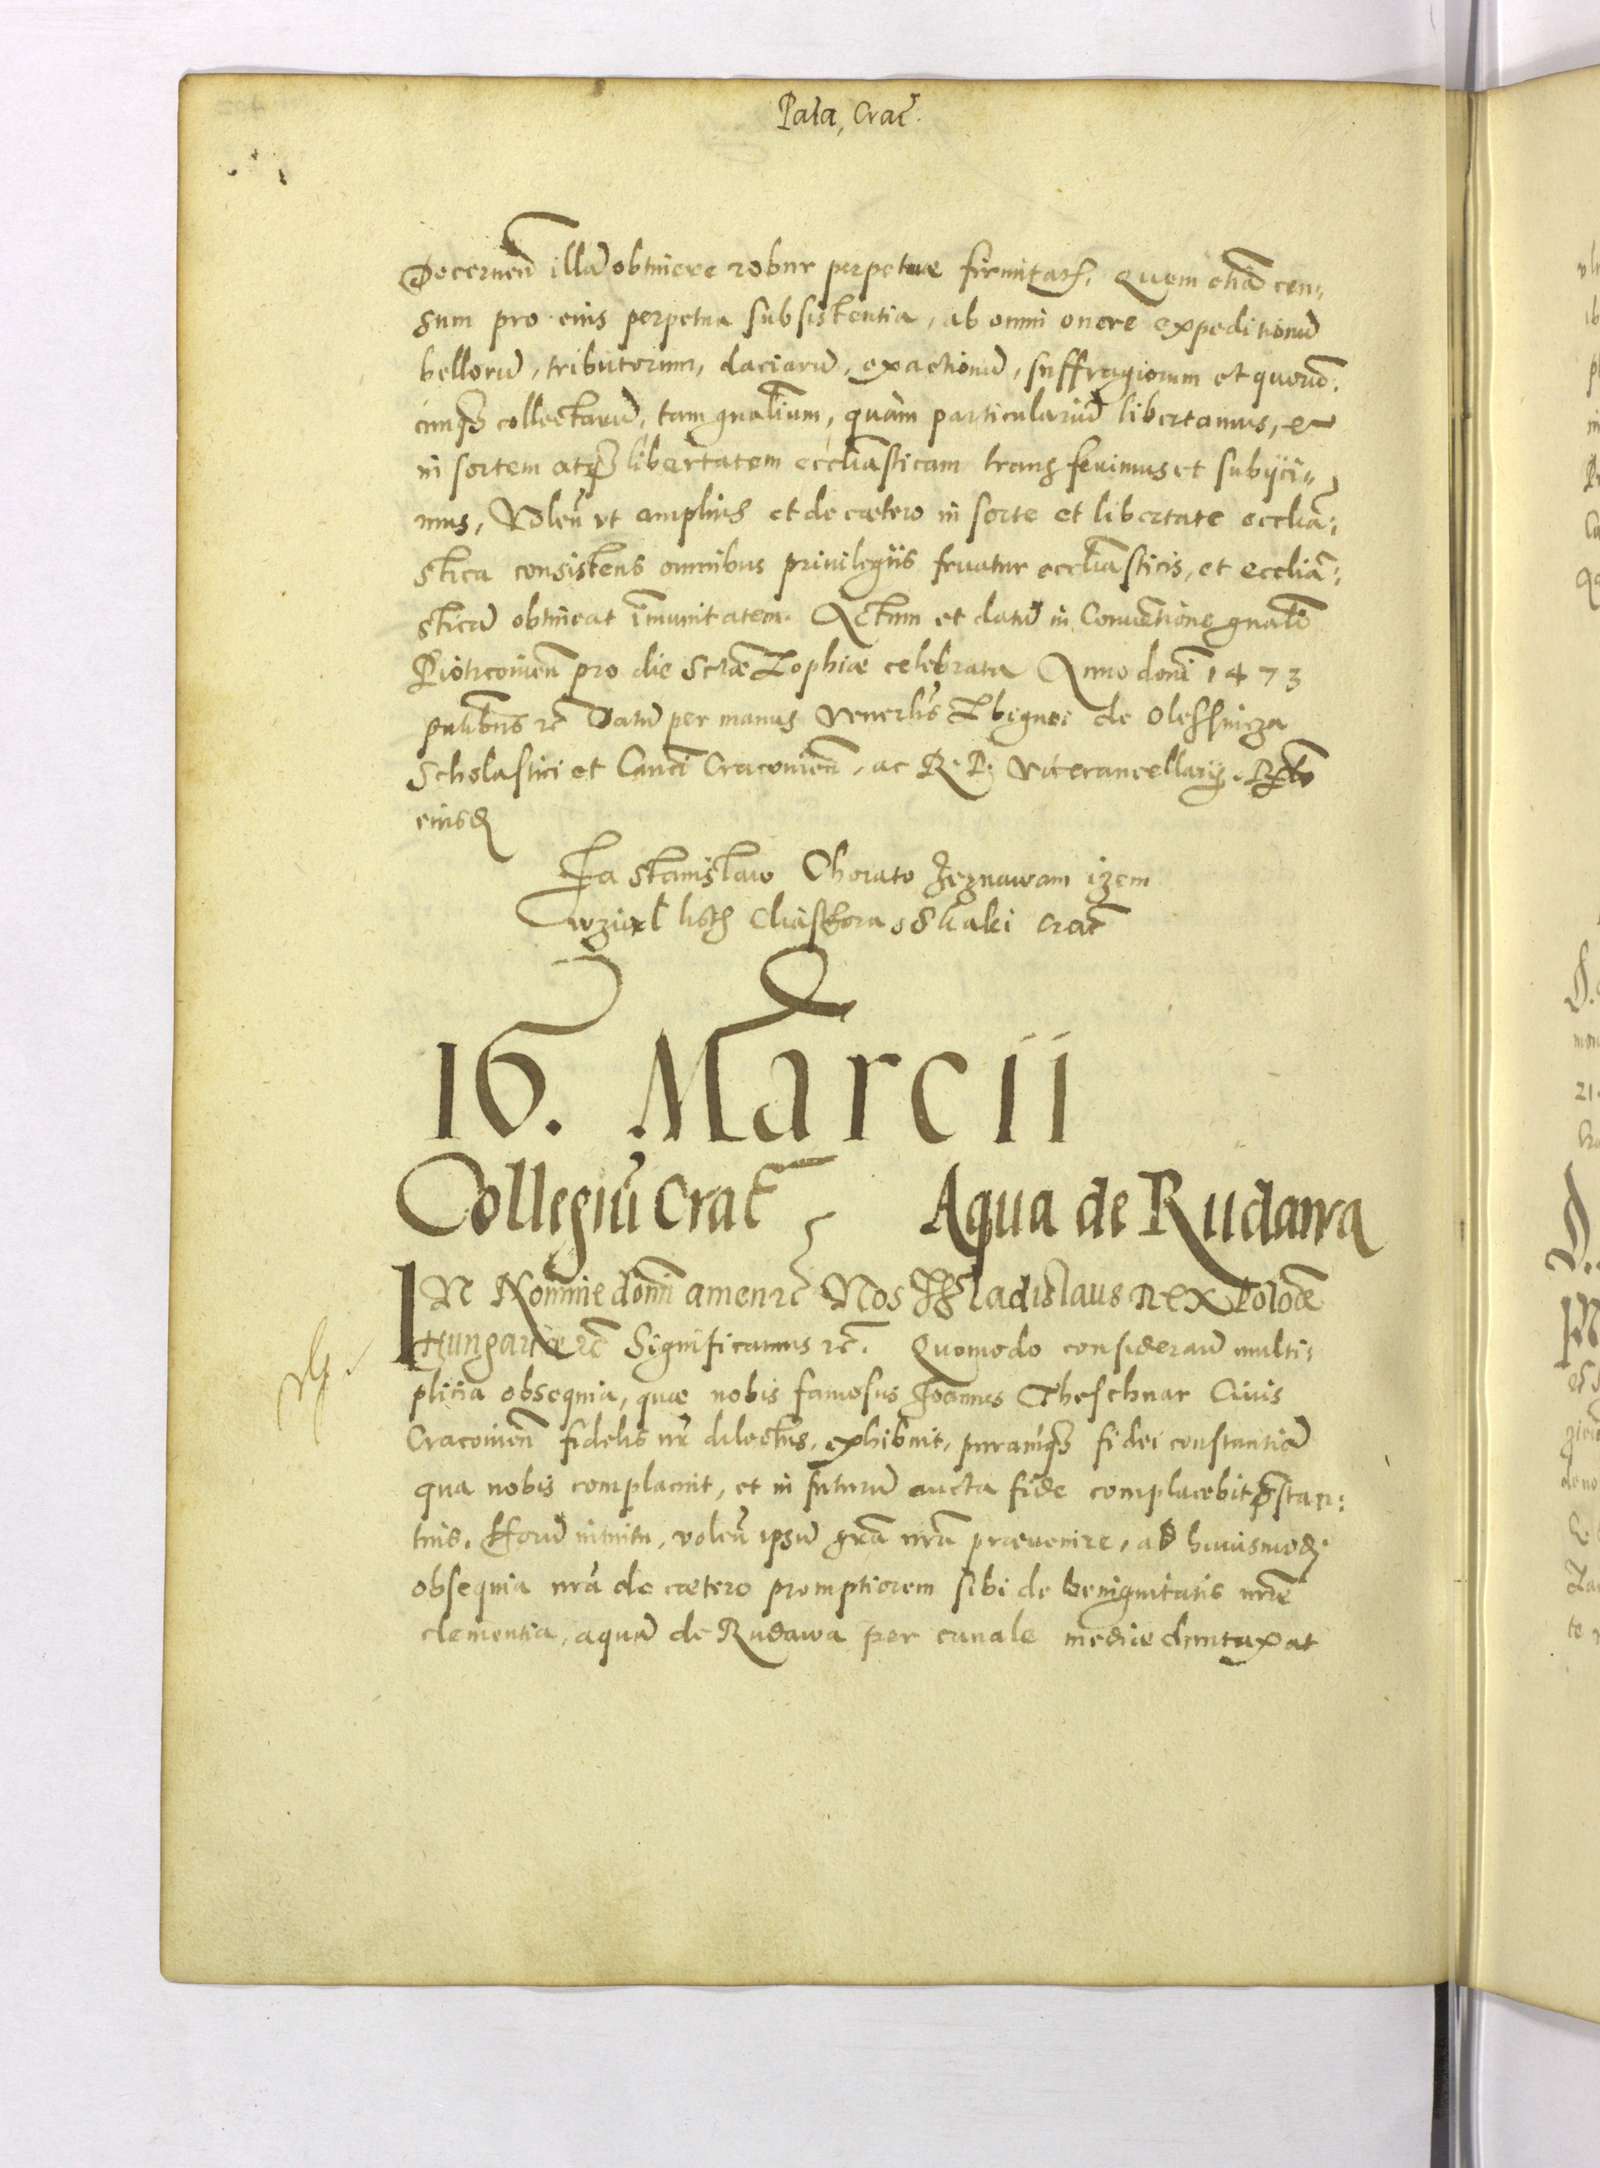 Pala, Crac̃.
Decernen̄ illā obtinere robur perpetuae firmitatis. Quem etiā cen:
sum pro eius perpetua subsistentia, ab omni onere expeditionū
bellorū, tributorum, daciarū, exactionū, suffragiorum et quorū:
cunq3 collectarū, tam gnalium, quàm particulariū libertamus, et
in sortem atq3 libertatem eccliasticam transferimus et subijci:
mus, Volen̄ vt amplius et de caetero in sorte et libertate ecclia:
stica consistens omnibus priuilegijs fruatur eccliasticis, et ecclia:
sticā obtineat im̄unitatem. Actum et datū in Conuentione gnali
Piotrcouien̄ pro die Sctae Zophiae celebrata Anno doni 1473
pntibus rc̄ Datū per manus Venerlis Sbignei de Olessnicza
Scholastici et Canci Cracouien̄, ac R. P. Vicecancellarij. Rx̄to
eiusd
Ja Stanislaw Chorato zeznawam izem
wzial listh Cliasstora Skalki Crac̃
16. Marcii
Collegiū Crac̃ Aqua de Rudawa
IN Nomine domi amen rc̄ Nos Wladislaus Rex Poloae
Hungariae rc̄ Significamus rc̄. Quomodo consideran̄ multi:
plicia obsequia, quae nobis famosus Joannes Theschnar Ciuis
Cracouien̄ fidelis nr̄ dilectus, exhibuit, puramq3 fidei constantiā
qua nobis complacuit, et in futurū aucta fide complacebit p̄stan:
tius. Horū intuitu, volen̄ ipsū grā nrā praeuenire, ad huiusmodi
obsequia nrā de caetero promptiorem sibi de benignitatis nrae
clementia, aquā de Rudawa per canale mediae duntaxat